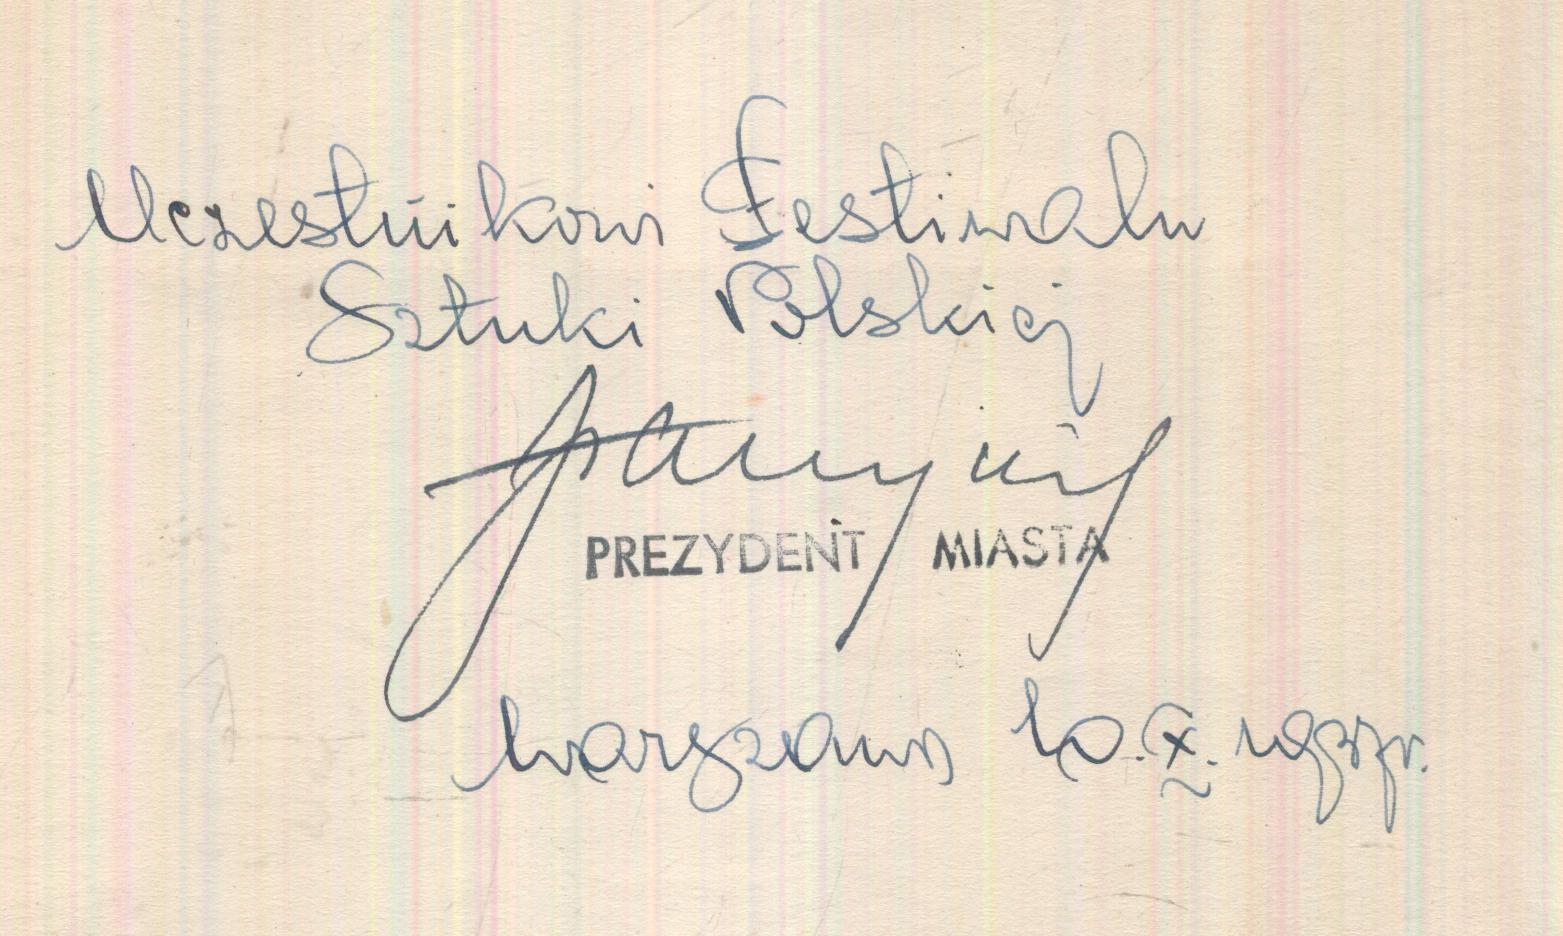 Uczestnikowi Festiwalu
Sztuki Polskiej
PREZYDENT MIASTA
Warszawa 10.X.1937r.